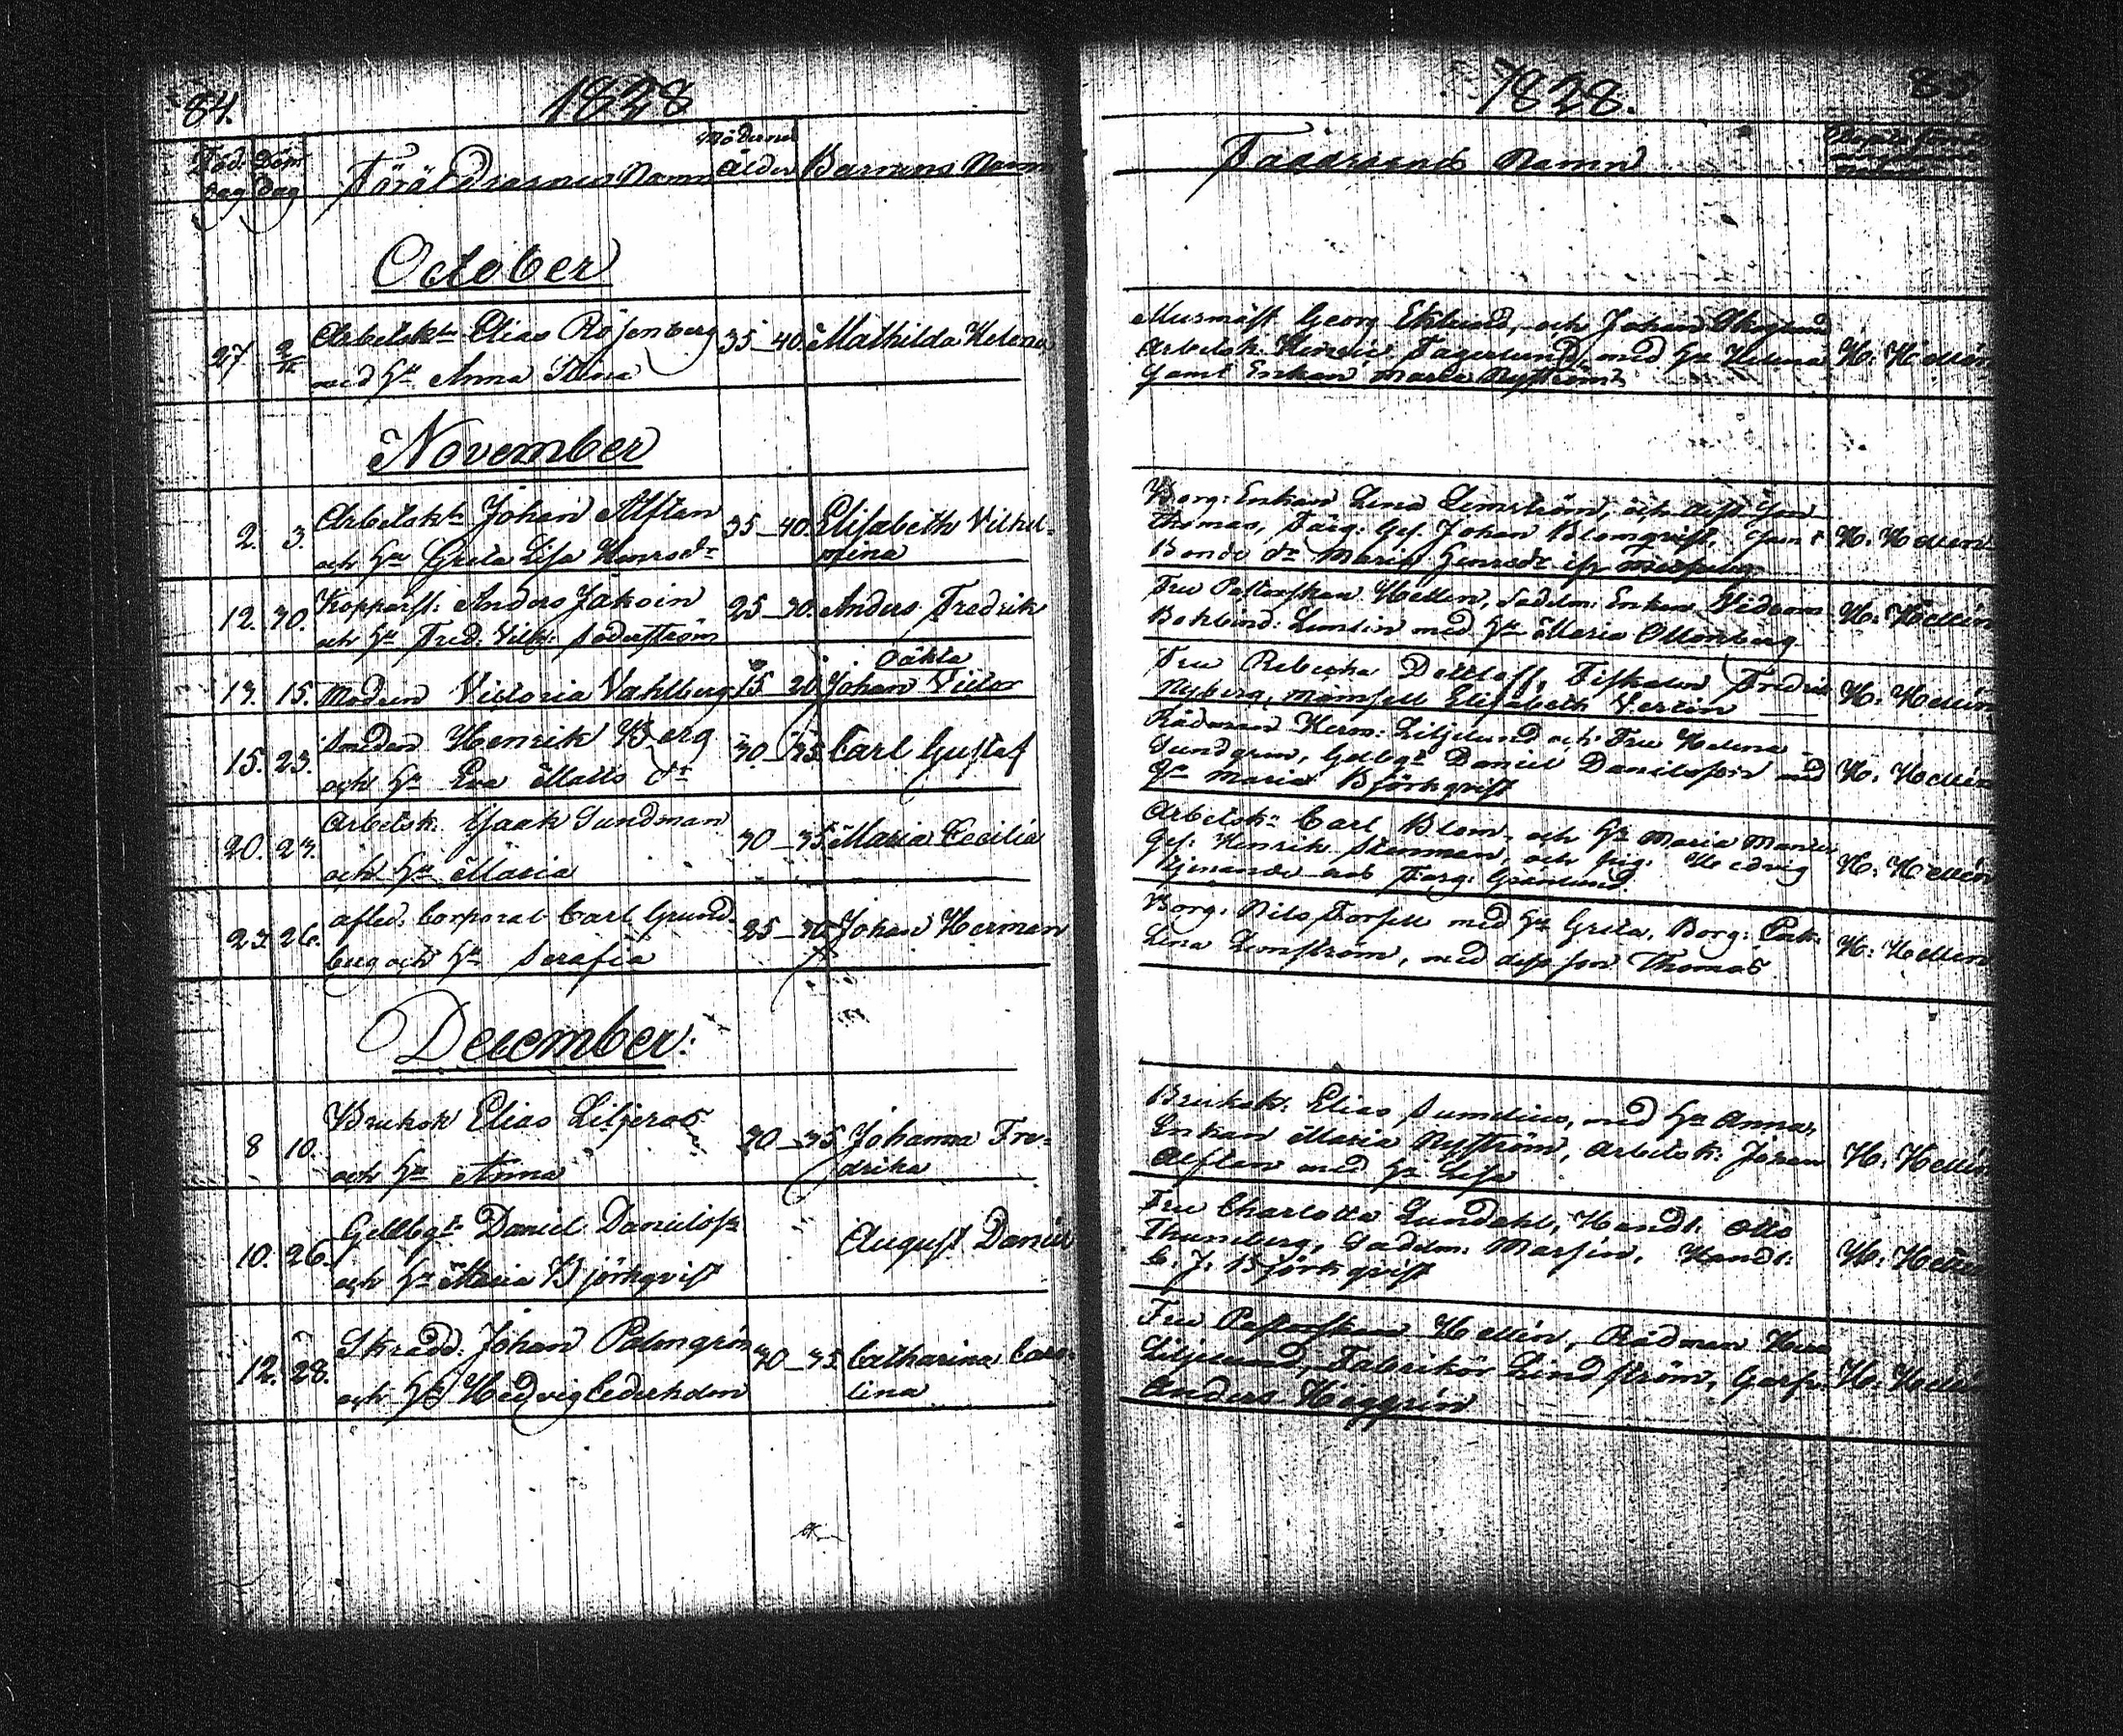 84.
1828
Föd. Döp
dag dag
Föräldrarnes Namn
Mödrens
Ålder
Barnens Namn
October
27 2/11
Arbetskn Elias Rosenberg
med Hu Anna Stina
35–40.
Mathilda Helena
November
2. 3.
Arbetskn Johan Alftan
och Hu Greta Lisa Henrsdr
35–40.
Elisabeth Vilhel-
mina
12. 30.
Kopparsl: Anders Jakoin
och Hu Fred. Vilh: Söderström
25–30.
Anders Fredrik
13. 15.
Modren Victoria Vahlberg
15–20.
Oäkta
Johan Victor
15. 23.
Smeden Henrik Berg
och Hu Eva Matts dr
30–35.
Carl Gustaf
20. 23.
Arbetsk: Isaak Sundman
och Hu Maria
30–35
Maria Cecilia
23. 26.
afsked. Corporal Carl Grund-
berg och Hu Serafia
25–30
Johan Herman
December:
8 10.
Bruksk Elias Liljeros
och Hu Anna
30–35
Johanna Fre-
drika
10. 26.
Gellbgt Daniel Danielsson
och Hu Maria Björkqvist
August Daniel
12. 28.
Skrädd. Johan Palmgrén
och Hu Hedvig Cederholm
30–35
Catharina Caro-
lina
1828.
85.
Faddrarnes Namn
Georg Eklund, och Johan Skoglund
Arbetsk. Henric Fagerlund, med Hu Helena
samt Enkan Maria Nyström
H: Hellén
Borg: Enkan Lena Lemström, och
Thomas, Färg: Ges. Johan Blomqvist, samt
Bonde dr Maria Henrsdr
H: Hellén
Fru Pastorskan Hellén, Sadelm: Enkan Widbom
Bokbind: Lundin med Hu Maria Ottenberg
H: Hellén
Fru Rebecka Dettloff, Fiskalen Fredrik
Nyberg, Mamsell Elisabeth Vertin
H: Hellén
Rådman Herm: Liljelund och Fru Helena
Sundgren, Gellbgt Daniel Danielsson med
Hu Maria Björkqvist
H: Hellén
Arbetskn Carl Blom, och Hu Maria
Ges: Henrik Stenman, och Pig: Hedvig
hos Färg: Grönlund
H: Hellén
Borg: Nils Forsell med Hu Greta, Borg: Enk:
Lena Lemström, med dess son Thomas
H: Hellén
Bruksk: Elias Sumelius, med Hu Anna,
Enkan Maria Nyström, Arbetsk: Johan
Alftan med Hu Lisa
H: Hellén
Fru Charlotta Lundahl, Handl: Otto
Thuneberg, Sadelm: Marsin, Handl:
C. J: Björkqvist
H: Hellén
Fru Pastorskan Hellén, Rådman Herm
Liljelund, Fabrikör Lindström, Garfv:
Anders Häggrén
H: Hellén